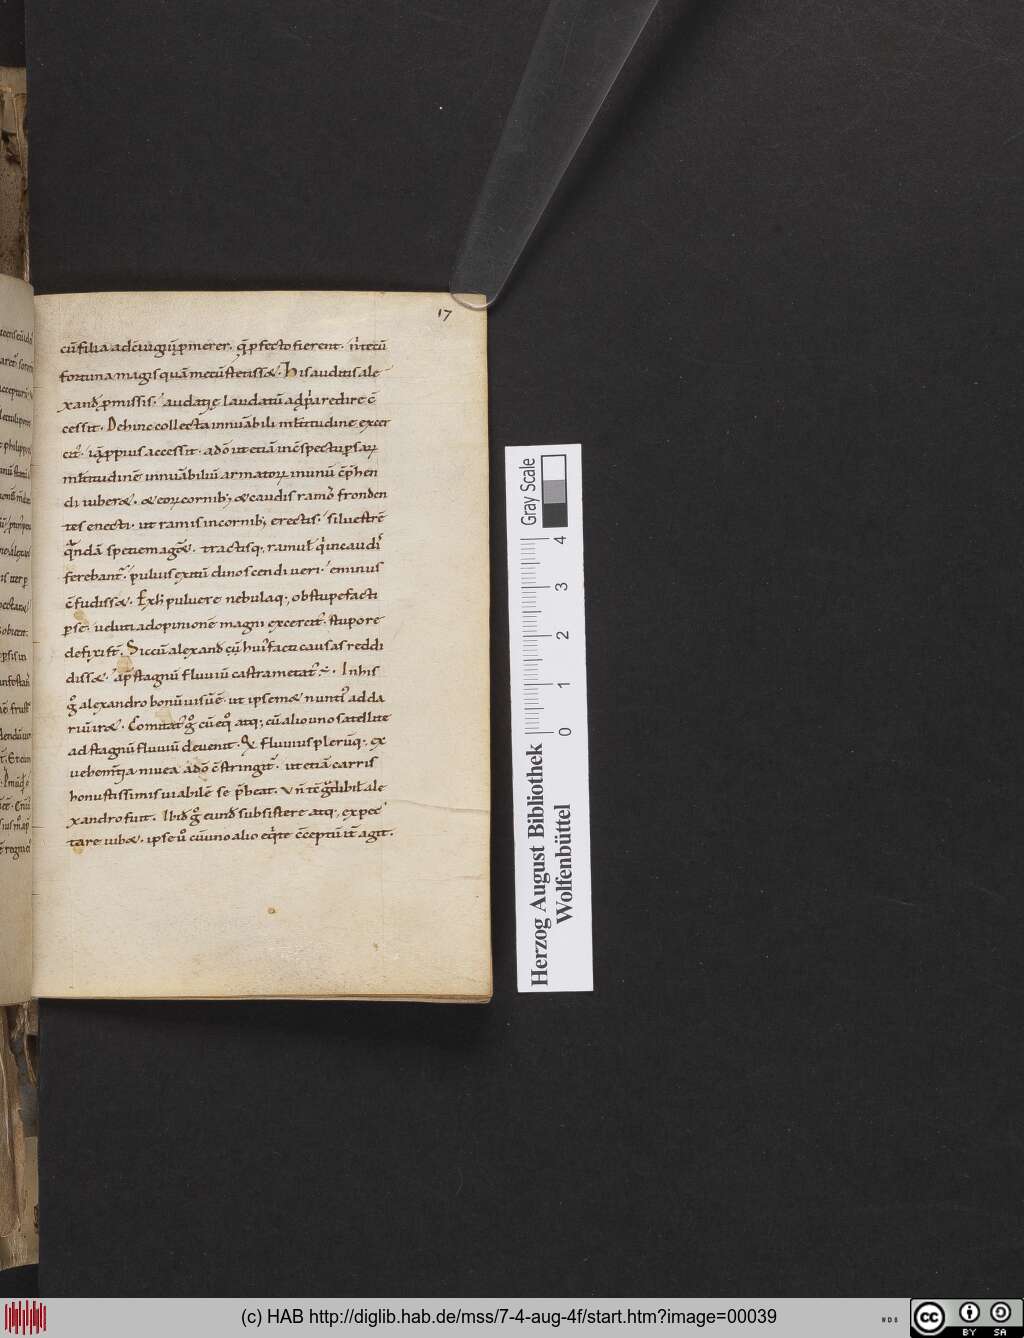 17
cū filia ad ciugiū pmerer. q̄ pfecto fierent. n̄ tecū
fortuna magis quā metū stetiss&. His auditis ale
xand pmissis. audatię laudatū ad p̄a redire c̄
cessit. Dehinc collecta innūabili ml̄titudine exer
cit. iā ppius accessit. adō ut etiā in c̄spectu psaꝝ
ml̄titudinē innūabiliū armatoꝝ in unū cp̄hen
di iuber&. & eoꝝ cornib; & caudis ramo frond en
tes enecti. ut ramis in cornib; erectis. siluestrē
q̄ndā spetiem agē&. tractisq; ramul q̄ in caudi
ferebant. puluis exitū dinoscendi ueri. eminus
c̄fudiss&. Ex h puluere nebulaq; obstupefacti
pse. ueluti ad opinionē magni exercit. stupore
defixi st̄. Sic cū alexand cū hui facti causas reddi
diss&. ap̄ stagnū fluuiū castrametat ē. In his
g̊ alexandro bonū uisū ē. ut ipsem& nuntı̉ ad da
riū ir&. Comitat g̊ cū eq̊ atq; cū alio uno satellite
ad stagnū fluuiū deuenit. Q fluuius plerūq; ex
uehemtia niuea adō c̄stringit. ut etiā carris
honustissimis uiabilē se p̄beat. Vn̄ tc̄ g̃dibil ale
xandro fuit. Ibid g̊ eund subsistere atq; expec
tare iub&. ipse ů cū uno alio eq̄te c̄ceptū it̄ agit.
Gray Scale
0 1 2 3 4
Herzog August Bibliothek
Wolfenbüttel
(c) HAB http://diglib.hab.de/mss/7-4-aug-4f/start.htm?image=00039
cc BY SA